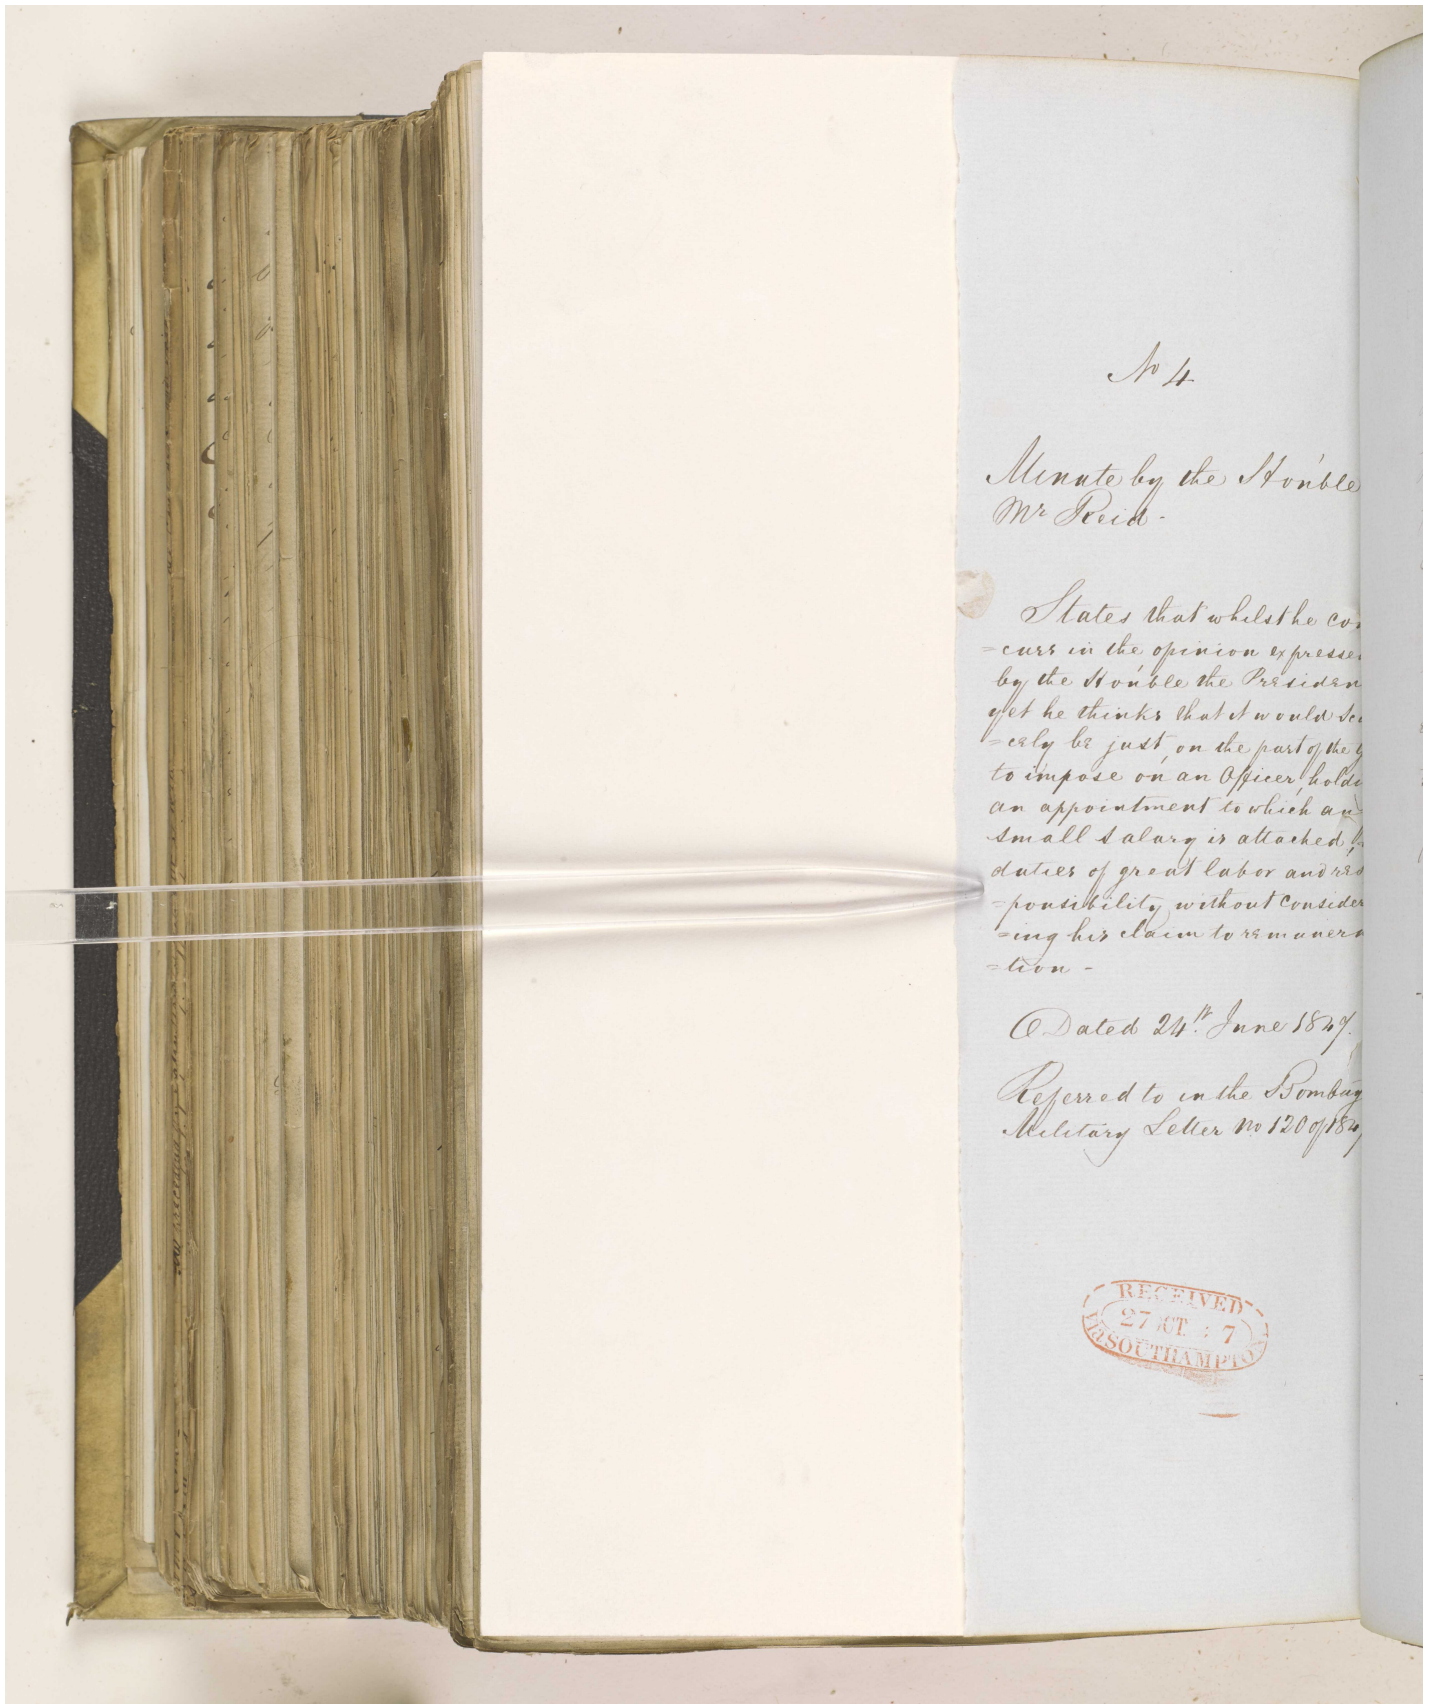 No 4
Minute by the Hon'ble
Mr Reid -
States that whilst he con
=curs in the opinion expressed
by the Hon'ble the Presiden
yet he thinks that it would sc
=cely be just, on the part of the G
to impose on an Officer, holdi
an appointment to which a
small salary is attached,
duties of great labor and res
=ponsibility without consider
=ing his claim to remunera
=tion -
Dated 24th June 1847.
Referred to in the Bombay
Military Letter No 120 of 184
RECEIVED
27 OCT 7
via SOUTHAMPTO